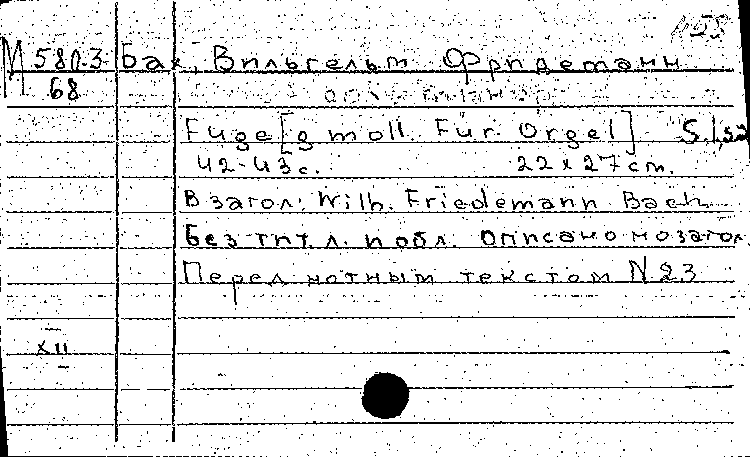 М 580.3 Бах, Вильгельм Фридеманн
68
Fuge [g moll. Für. Orgel] S.l,
42-43 с. 22 x 27 cm.
В загол: Wilh. Friedemann Bach
Без тит. л. и обл. Описано по загол.
Перед нотным текстом N 23
XII